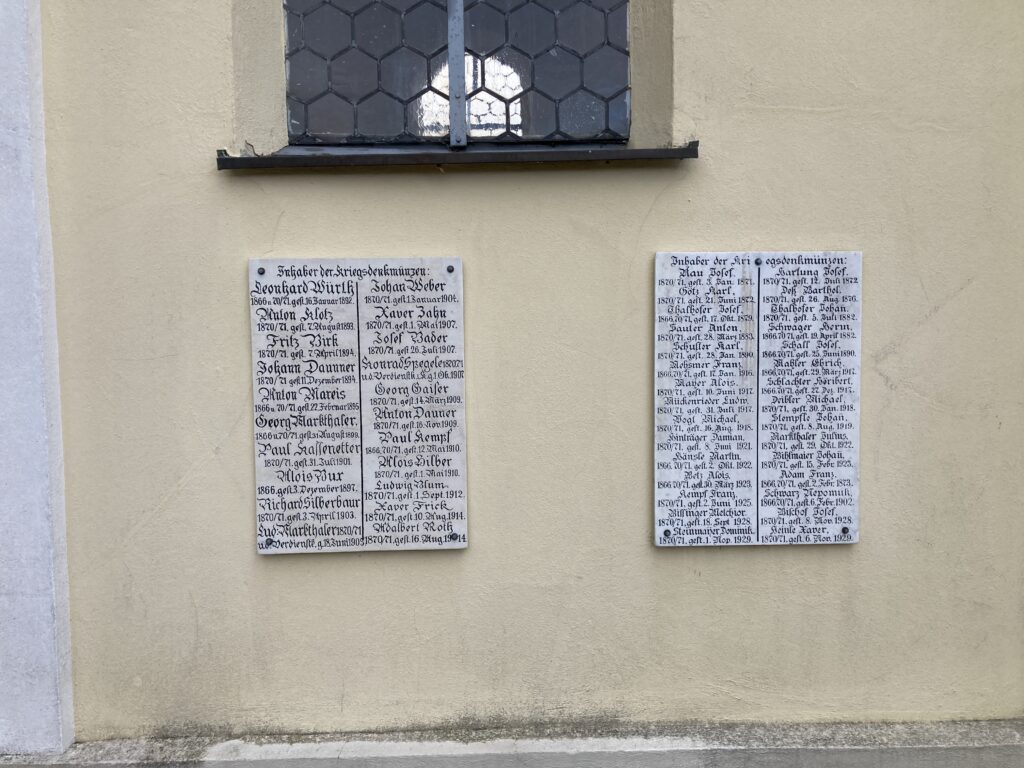 Inhaber der Kriegsdenkmünzen:
Leonhard Würth
1866 u 70/71. gest. 16. Januar 1892.
Anton Klotz
1870/71. gest. 7. August 1893.
Fritz Birk
1870/71. gest. 7. April 1894.
Johann Daunner
1870/71. gest. 11. Dezember 1894.
Anton Mareis
1866 u. 70/71. gest. 22. Februar 1895
Georg Markthaler.
1866 u 70/71. gest. 21 August 1899.
Paul Kassenetter
1870/71. 31. Juli 1901.
Alois Wux
1866. gest. 3. Dezember 1897.
Richard Silberbaur
1870/71. gest. 3. April 1903.
Lud. Markthaler 1870/71
u. Verdienstk. g. 18. Juni 1905
Johan Weber
1870/71. gest. 1. Januar 1904.
Xaver Zahn
1870/71. gest. 1. Mai 1907.
Josef Bader
1870/71. gest. 26. Juli 1907.
Konrad Spegele 1870/71
u. d. Verdienstk. g. 1. Okt. 1907
Georg Gaiser
1870/71. gest. 14. März 1909.
Anton Dauner
1870/71. gest. 15. Nov. 1909.
Paul Kempf
1866, 70/71. gest. 12. Mai 1910.
Alois Silber
1870/71. gest. 1. Mai 1910.
Ludwig Blum
1870/71. gest. 1. Sept. 1912.
Xaver Frick
1870/71. gest. 10. Aug. 1914.
Adalbert Roth
1870/71. gest. 16. Aug. 1914.
Inhaber der Kriegsdenkmünzen:
Rau Josef.
1870/71. gest. 3. Jan. 1871.
Götz Karl,
1870/71. gest. 21. Juni 1872.
Thalhofer Josef,
1866.70/71. gest. 17. Okt. 1879.
Sauter Anton,
1870/71. gest. 28. März 1883.
Schuster Karl,
1870/71. gest. 28. Jan. 1890.
Mehsner Franz
1866.70/71. gest. 17. Jan. 1916.
Mayer Alois.
1870/71. gest. 10. Juni 1917.
Mückenrieder Ludw.
1870/71. gest. 31. Juli 1917.
Vogl Michael,
1870/71. gest. 16. Aug. 1918.
Hinträger Damian,
1870/71. gest. 8. Juni 1921.
Hänsle Martin.
1866.70/71. gest. 2. Okt. 1922.
Betz Alois.
1866 70/71. gest. 30. März 1923.
Kempf Franz,
1870/71. gest. 2. Juni 1925.
Bissinger Melchior,
1870/71. gest. 18. Sept 1928.
Steinmayer Dominik,
1870/71. gest. 1. Nov. 1929.
Hartung Josef.
1870/71. gest. 12. Juli 1872
Deß Barthol.
1870/71. gest. 26. Aug. 1876.
Thalhofer Johan.
1870/71. gest. 5. Juli 1882.
Schwager Herm.
1866.70/71. gest. 19. April 1882.
Schall Josef.
1866.70/71. gest. 25. Juni 1890.
Mahler Ehrich,
1866.70/71. gest. 29. März 1917.
Schlachter Heribert.
1866.70/71. gest. 27. Dez. 1917.
Deibler Michael,
1870/71. gest. 30. Jan. 1918.
Stempfle Johan,
1870/71. gest. 8. Aug. 1919.
Markthaler Julius,
1870/71. gest. 29. Okt. 1922.
Bihlmaier Johan,
1870/71. gest. 15. Febr. 1925.
Adam Franz,
1866 70/71. gest. 2. Febr. 1873.
Schwarz Nepomuk,
1866 70/71. gest. 6. Febr. 1902.
Bischof Josef
1870/71. gest. 8. Nov. 1928.
Heinle Xaver,
1870/71. gest. 6. Nov. 1929.